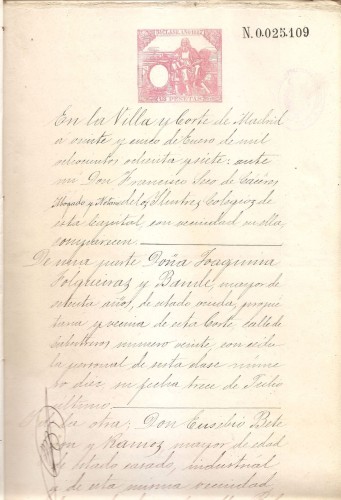 N.0.025.109
En la Villa y Corte de Madrid
a veinte y cinco de Enero de mil
ochocientos ochenta y siete: ante
mi Don Francisco Seco de Cáceres
Abogado y Notario de los Ilustres Colegios de
esta Capital, con vecindad en ella,
comparecen.
De una parte Doña Joaquina
Folgueiraz y mayor de
setenta años, de estado viuda, propie
taria y vecina de esta Corte, calle de
numero veinte, con cedu
la personal de sesta clase núme
ro diez, su fecha trece de Julio
ultimo.
Y de la otra; Don Eusebio
y Ramoz, mayor de edad
de estado casado, industrial
y de esta misma vecindad,